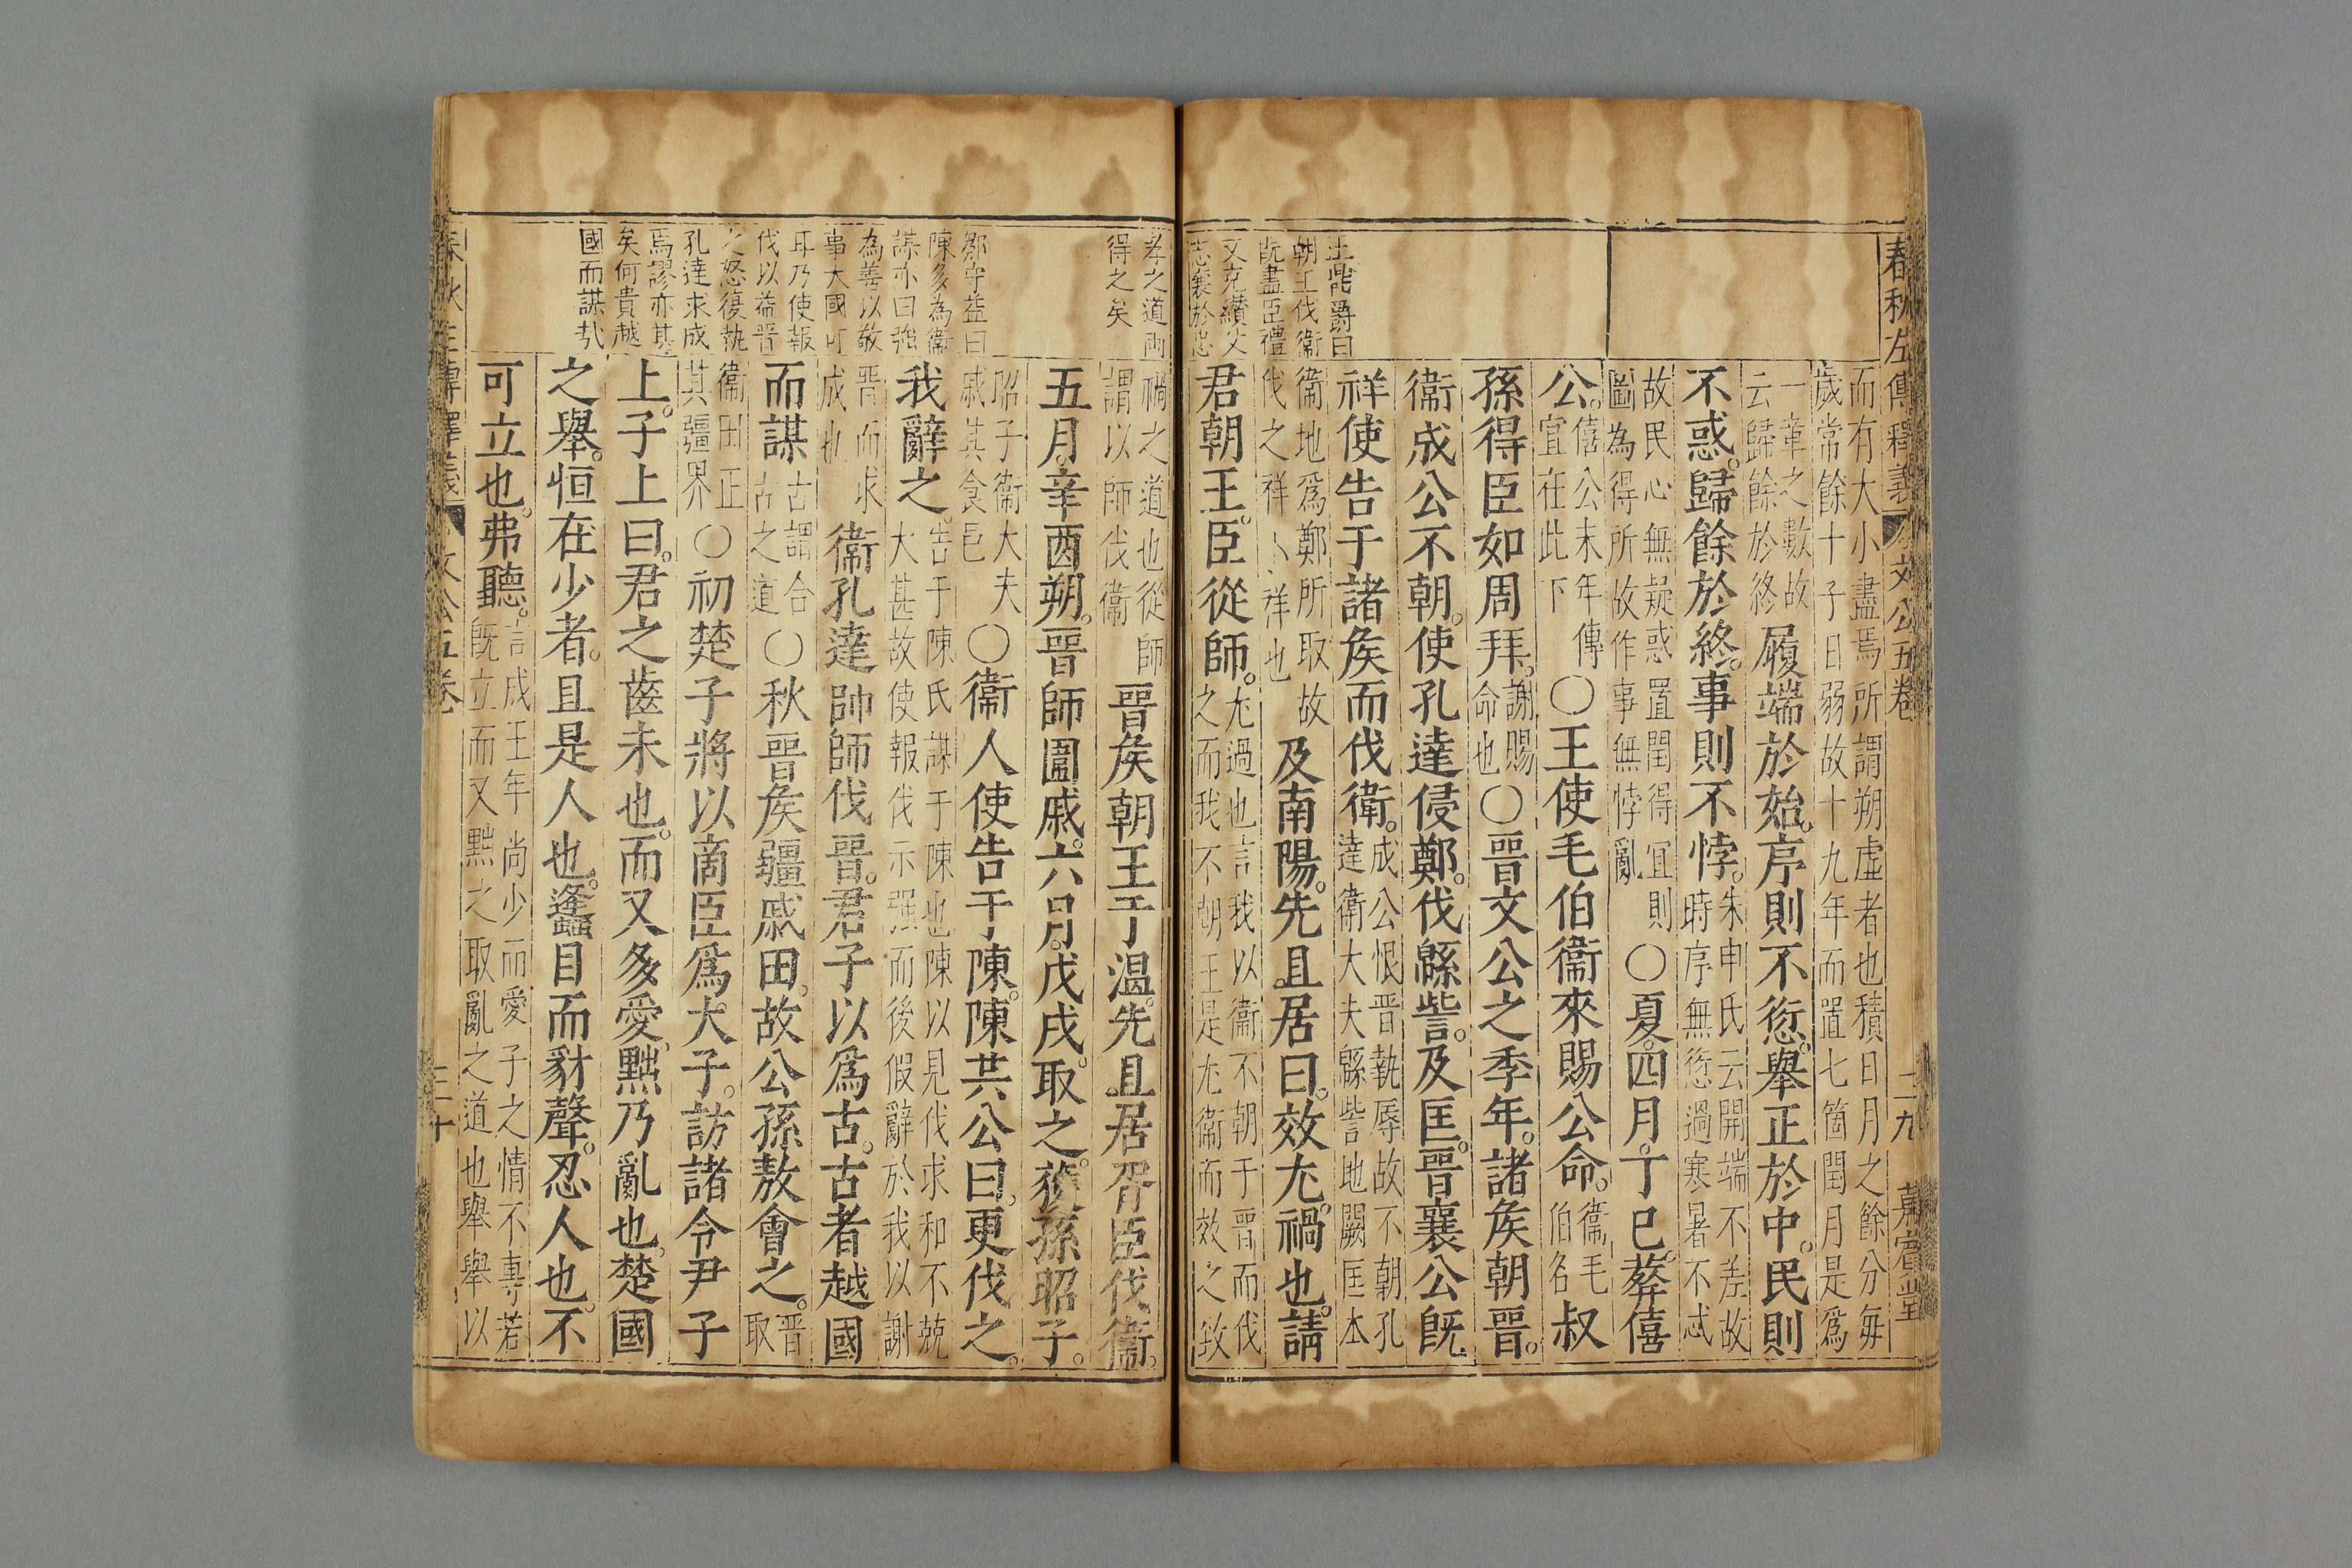 春秋左傳釋義 文公五卷 二九 堂
而有大小盡焉所謂朔虛者也積日月之餘分毎
歲常餘十子日弱故十九年而置七箇閏月是爲
一章之數故
云歸餘於終
履端於始。序則不愆。舉正於中。民則
不惑。歸餘於終。事則不悖。
朱申氏云開端不差故
時序無愆過寒暑不忒
故民心無疑惑置閏得宜則
圖為得所故作事無悖亂
○夏。四月。丁巳。葬僖
公。
僖公末年傳
宜在此下
○王使毛伯衞來賜公命。
衞毛
伯名
叔
孫得臣如周拜。
謝賜
命也
○晉文公之季年。諸矦朝晉。
衞成公不朝。使孔達侵鄭。伐緜訾。及匡。晉襄公既
祥使告于諸矦而伐衛。
成公恨晉執辱故不朝孔
達衞大夫緜訾地闕匡本
王鼎爵曰
朝王伐衞
既盡臣禮
又克纘父
志襄於忠
衞地爲鄭所取故
伐之祥小祥也
及南陽。先且居曰。效尤。禍也。請
君朝王。臣從師。
尤過也言我以衞不朝于晉而伐
之而我不朝王是尤衞而效之致
孝之道兩
得之矣
禍之道也從師
謂以師伐衞
晉矦朝王于溫。先且居胥臣伐衞。
五月。辛酉朔。晉師圍戚。六月。戊戌。取之。獲孫昭子。
昭子衞大夫
戚其食邑
○衞人使告于陳。陳共公曰。更伐之。
鄒守益曰
陳多為衞
謀亦曰強
為善以敬
事大國可
耳乃使報
伐以益晉
之怒復執
孔達求成
焉謬亦甚
矣何貴越
國而謀哉
我辭之
告于陳氏謀于陳也陳以見伐求和不兢
大甚故使報伐示强而後假辭於我以謝
晉而求
成也
衞孔達帥師伐晉。君子以爲古。古者越國
而謀
古謂合
古之道
○秋晉矦疆戚田。故公孫敖會之。
晉
取
衞田正
其疆界
○初楚子將以商臣爲大子。訪諸令尹子
上。子上曰。君之齒未也。而又多愛。黜乃亂也。楚國
之舉。恒在少者。且是人也。蠭目而豺聲。忍人也。不
可立也。弗聽。
言成王年尚少而愛子之情不專若
既立而又黜之取亂之道也舉舉以
春秋左傳釋義 文公五卷 三十